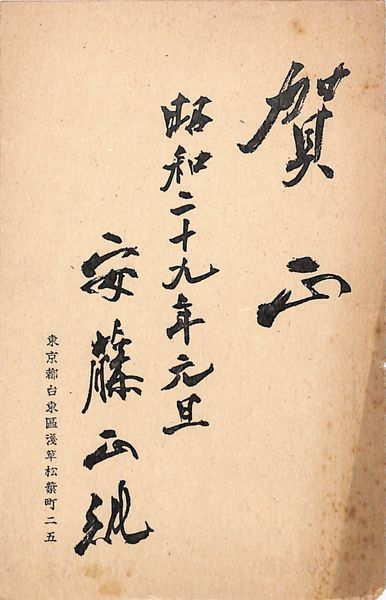 賀正
昭和二十九年元旦
安藤正純
東京都台東區淺草松葉町二五